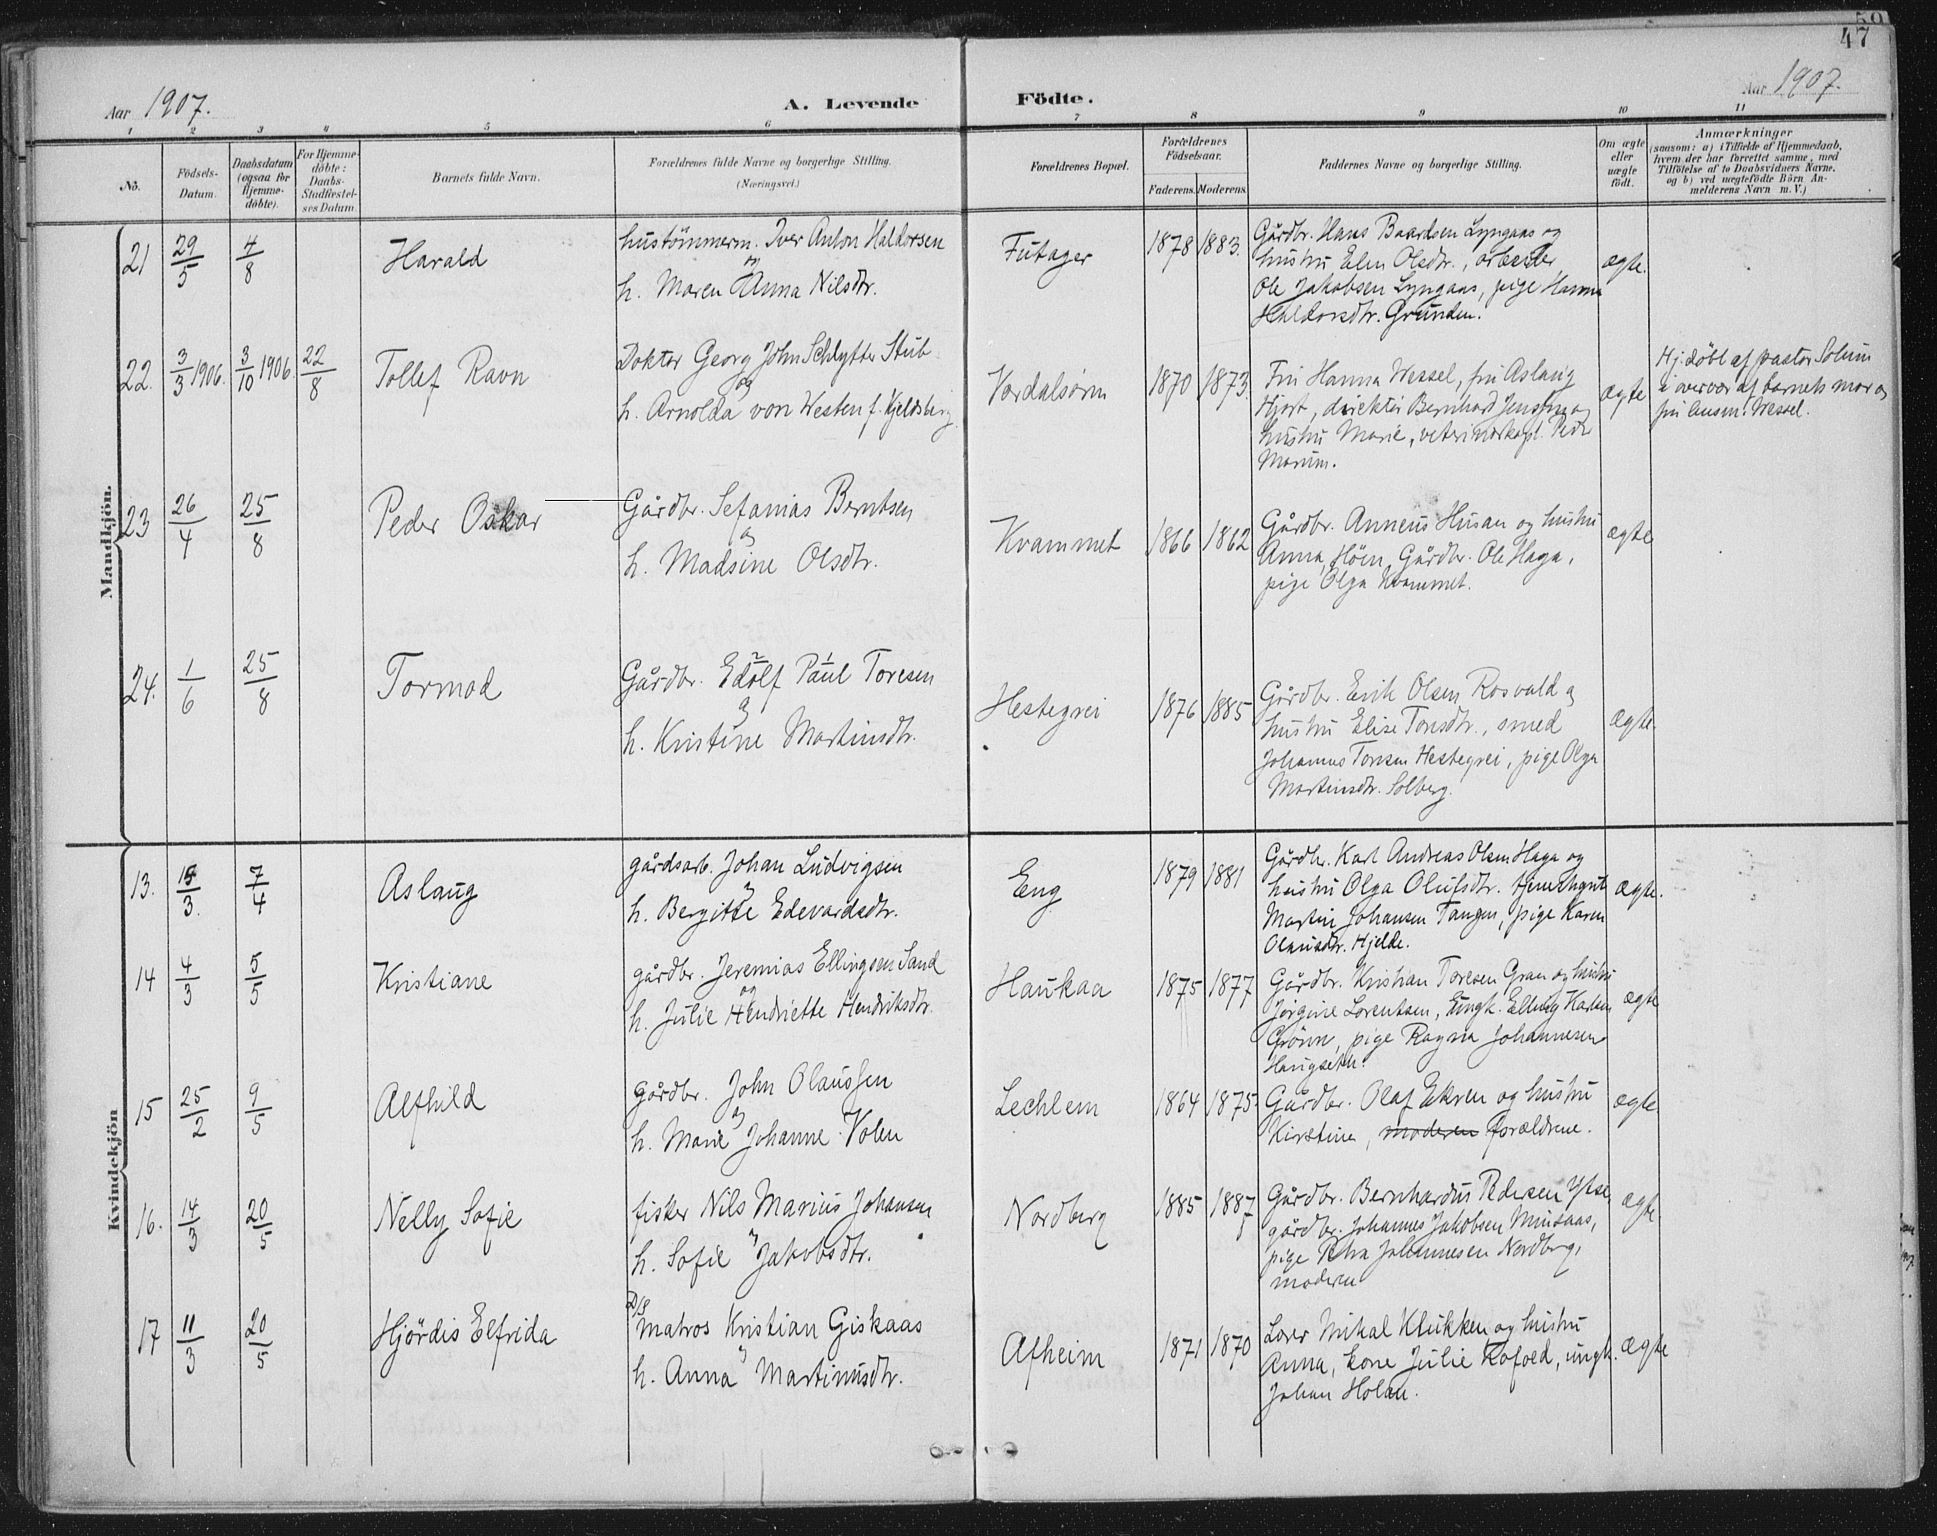 50
47
Aar 1907.
A. Levende Födte.
Aar 1907.
1 2 3 4 5 6 7 8 9 10 11
No.
Födsels-
Datum.
Daabsdatum
(ogsaa for
Hjemme-
döbte).
For Hjemme-
döbte:
Daabs-
Stadfæstel-
ses Datum
Barnets fulde Navn.
Forældrenes fulde Navne og borgerlige Stilling.
(Næringsvei.)
Forældrenes Bopæl.
Forældrenes
Födselsaar.
Faderens. Moderens.
Faddernes Navne og borgerlige Stilling.
Om ægte
eller
uægte
födt.
Anmærkninger
(saasom: a) i Tilfælde af Hjemmedaab,
hvem der har forrettet samme, med
Tilföielse af to Daabsvidners Navne.
og b) ved uægtefödte Börn An-
melderens Navn m. V.)
Mandkjön.
21 29/5 4/8 Harald
hustömmerm. Iver Anton Haldorsen
og
h. Maren Anna Nilsdtr.
Futager 1878 1883.
Gårdbr. Hans Baardsen Lyngaas og
hustru Elen Olsdtr., arbeider
Ole Jakobsen Lyngaas, pige Hanna
Haldorsdtr. Grunden.
ægte.
22. 3/3 1906. 3/10 1906. 22/8 Tollef Ravn
Doktor Georg John Schlytter Stub
og
h. Arnolda von Westen f. Kjeldsberg
Verdalsøren 1870 1873.
Fru Hanna Wessel, fru Aslaug
Hjort, direktør Bernhard Jenssen og
hustru Marie, veterinærkapt. Peder
Morum.
ægte
Hj.døbt af pastor Solum
i overvær af barnets mor og
fru Wessel.
23 26/4 25/8 Peder Oskar
Gårdbr. Sefanias Berntsen
og
h. Madsine Olsdtr.
Kvammet 1866 1862
Gårdbr. Anneus Husan og hustru
Anna, Höen, Gårdbr. Ole Haga,
pige Olga Kvammet.
ægte
24. 1/6 25/8 Tormod
Gårdbr. Edolf 2 Paul 1 Toresen
og
h. Kristine Martinsdtr.
Hestegrei 1876 1885
Gårdbr. Erik Olsen Rosvald og
hustru Elise Torsdtr., smed
Johannes Toresen Hestegrei, pige Olga
Martinsdtr. Solberg.
ægte.
Kvindekjön
13. 15/3. 7/4 Aslaug
gårdsarb. Johan Ludvigsen
og
h. Bergitte Edevardsdtr.
Eng 1879 1881
Gårdbr. Karl Andreas Olsen Haga og
hustru Olga Olufsdtr.
Martin Johansen Tangen, pige Karen
Olausdtr. Hjelde.
ægte.
14 4/3 5/5 Kristiane
gårdbr. Jeremias Ellingsen Sand
og
h. Julie Henriette Hendriksdtr.
Haukaa 1875 1877
Gårdbr. Kristian Toresen Gran og hustru
Jörgine Lorentsen, Ungk. Elling Karlsen
Grönn, pige Ragna Johannesen
Haugseth.
ægte
15 25/2 9/5 Alfhild
gårdbr. John Olaussen
og
h. Marie Johanne Volen
Lechlem 1864 1875.
Gårdbr. Olaf Ekren og hustru
Kirstine, moderen forældrene.
ægte
16. 14/3 20/5 Nelly Sofie
fisker Nils Marius Johansen
og
h. Sofie Jakobsdtr.
Nordberg 1885 1887
Gårdbr. Bernhardus Pedersen Ytse
gårdbr. Johannes Jakobsen Minsaas,
pige Petra Johannesen Nordberg,
moderen
ægte.
17 11/3 20/5 Hjördis Elfrida
D/S
Matros Kristian Giskaas
og
h. Anna Martinusdtr.
Afheim 1871 1870
Lærer Mikal Klukken og hustru
Anna, kone Julie Kofoed, ungk.
Johan Holan.
ægte